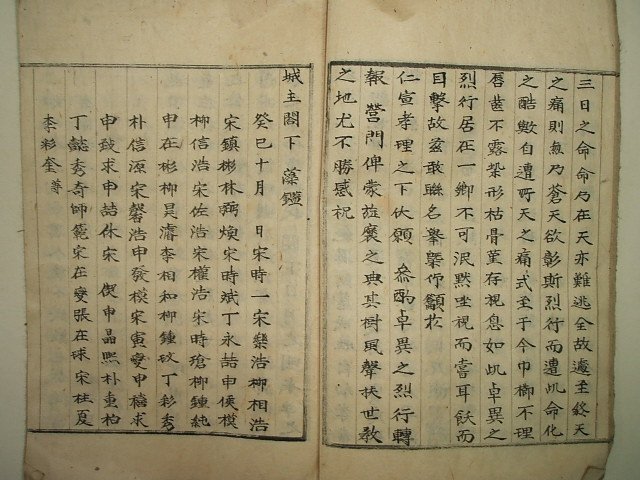 三日之命命乃在天亦難逃全故遽至終天
之痛則無乃蒼天欲彰斯烈行而遭此命化
之酷歟自遭所天之痛式至于今巾櫛不理
唇齒不露柴形枯骨堇存視息如此卓異之
烈行居在一鄉不可泯黙坐視而嘗耳飫而
目擊故玆敢聯名擧槩仰籲於
仁宣孝理之下伏願 參酌卓異之烈行轉
報 營門俾蒙旌褒之典其樹風聲扶世敎
之地尤不勝感祝
城主閤下 藻鑑
癸巳十月 日宋時一宋樂浩柳相浩
宋鎭彬林 煥宋時斌丁永喆申俠模
柳信浩宋佐浩宋權浩宋時瑲柳鍾純
申在彬柳昊濬李相和柳鍾玟丁彩秀
朴信源宋馨浩申發模宋寅燮申禧求
申致求申喆休宋 俊申晶熙朴重柏
丁懿秀奇師範宋在燮張在球宋柱夏
李彩奎等